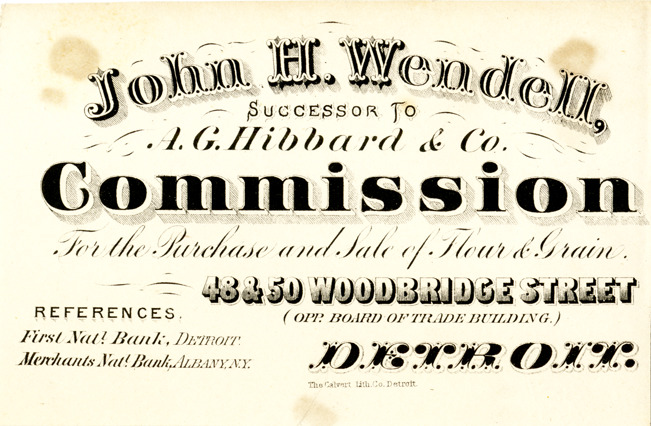 John H. Wendell,
Successor To
A. G. Hibbard & Co.
Commission
For the Purchase and Sale of Flour & Grain.
48 & 50 WOODBRIDGE STREET
(OPP. BOARD OF TRADE BUILDING.)
REFERENCES.
First Natl. Bank, DETROIT.
Merchants Natl. Bank, ALBANY, N.Y.
DETROIT.
The Calvert Lith. Co. Detroit.